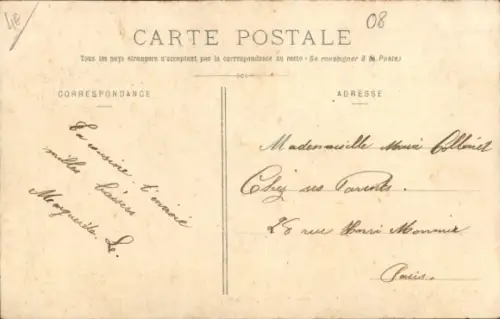 4E
08
CARTE POSTALE
Tous les pays étrangers n'acceptent pas la correspondance au recto - Se renseigner à la Poste
CORRESPONDANCE
ADRESSE
Ta cousine t'envoie
milles baisers
Marguerite. L.
Mademoiselle
Chez ses Parents.
28 rue Henri Monnier
Paris.